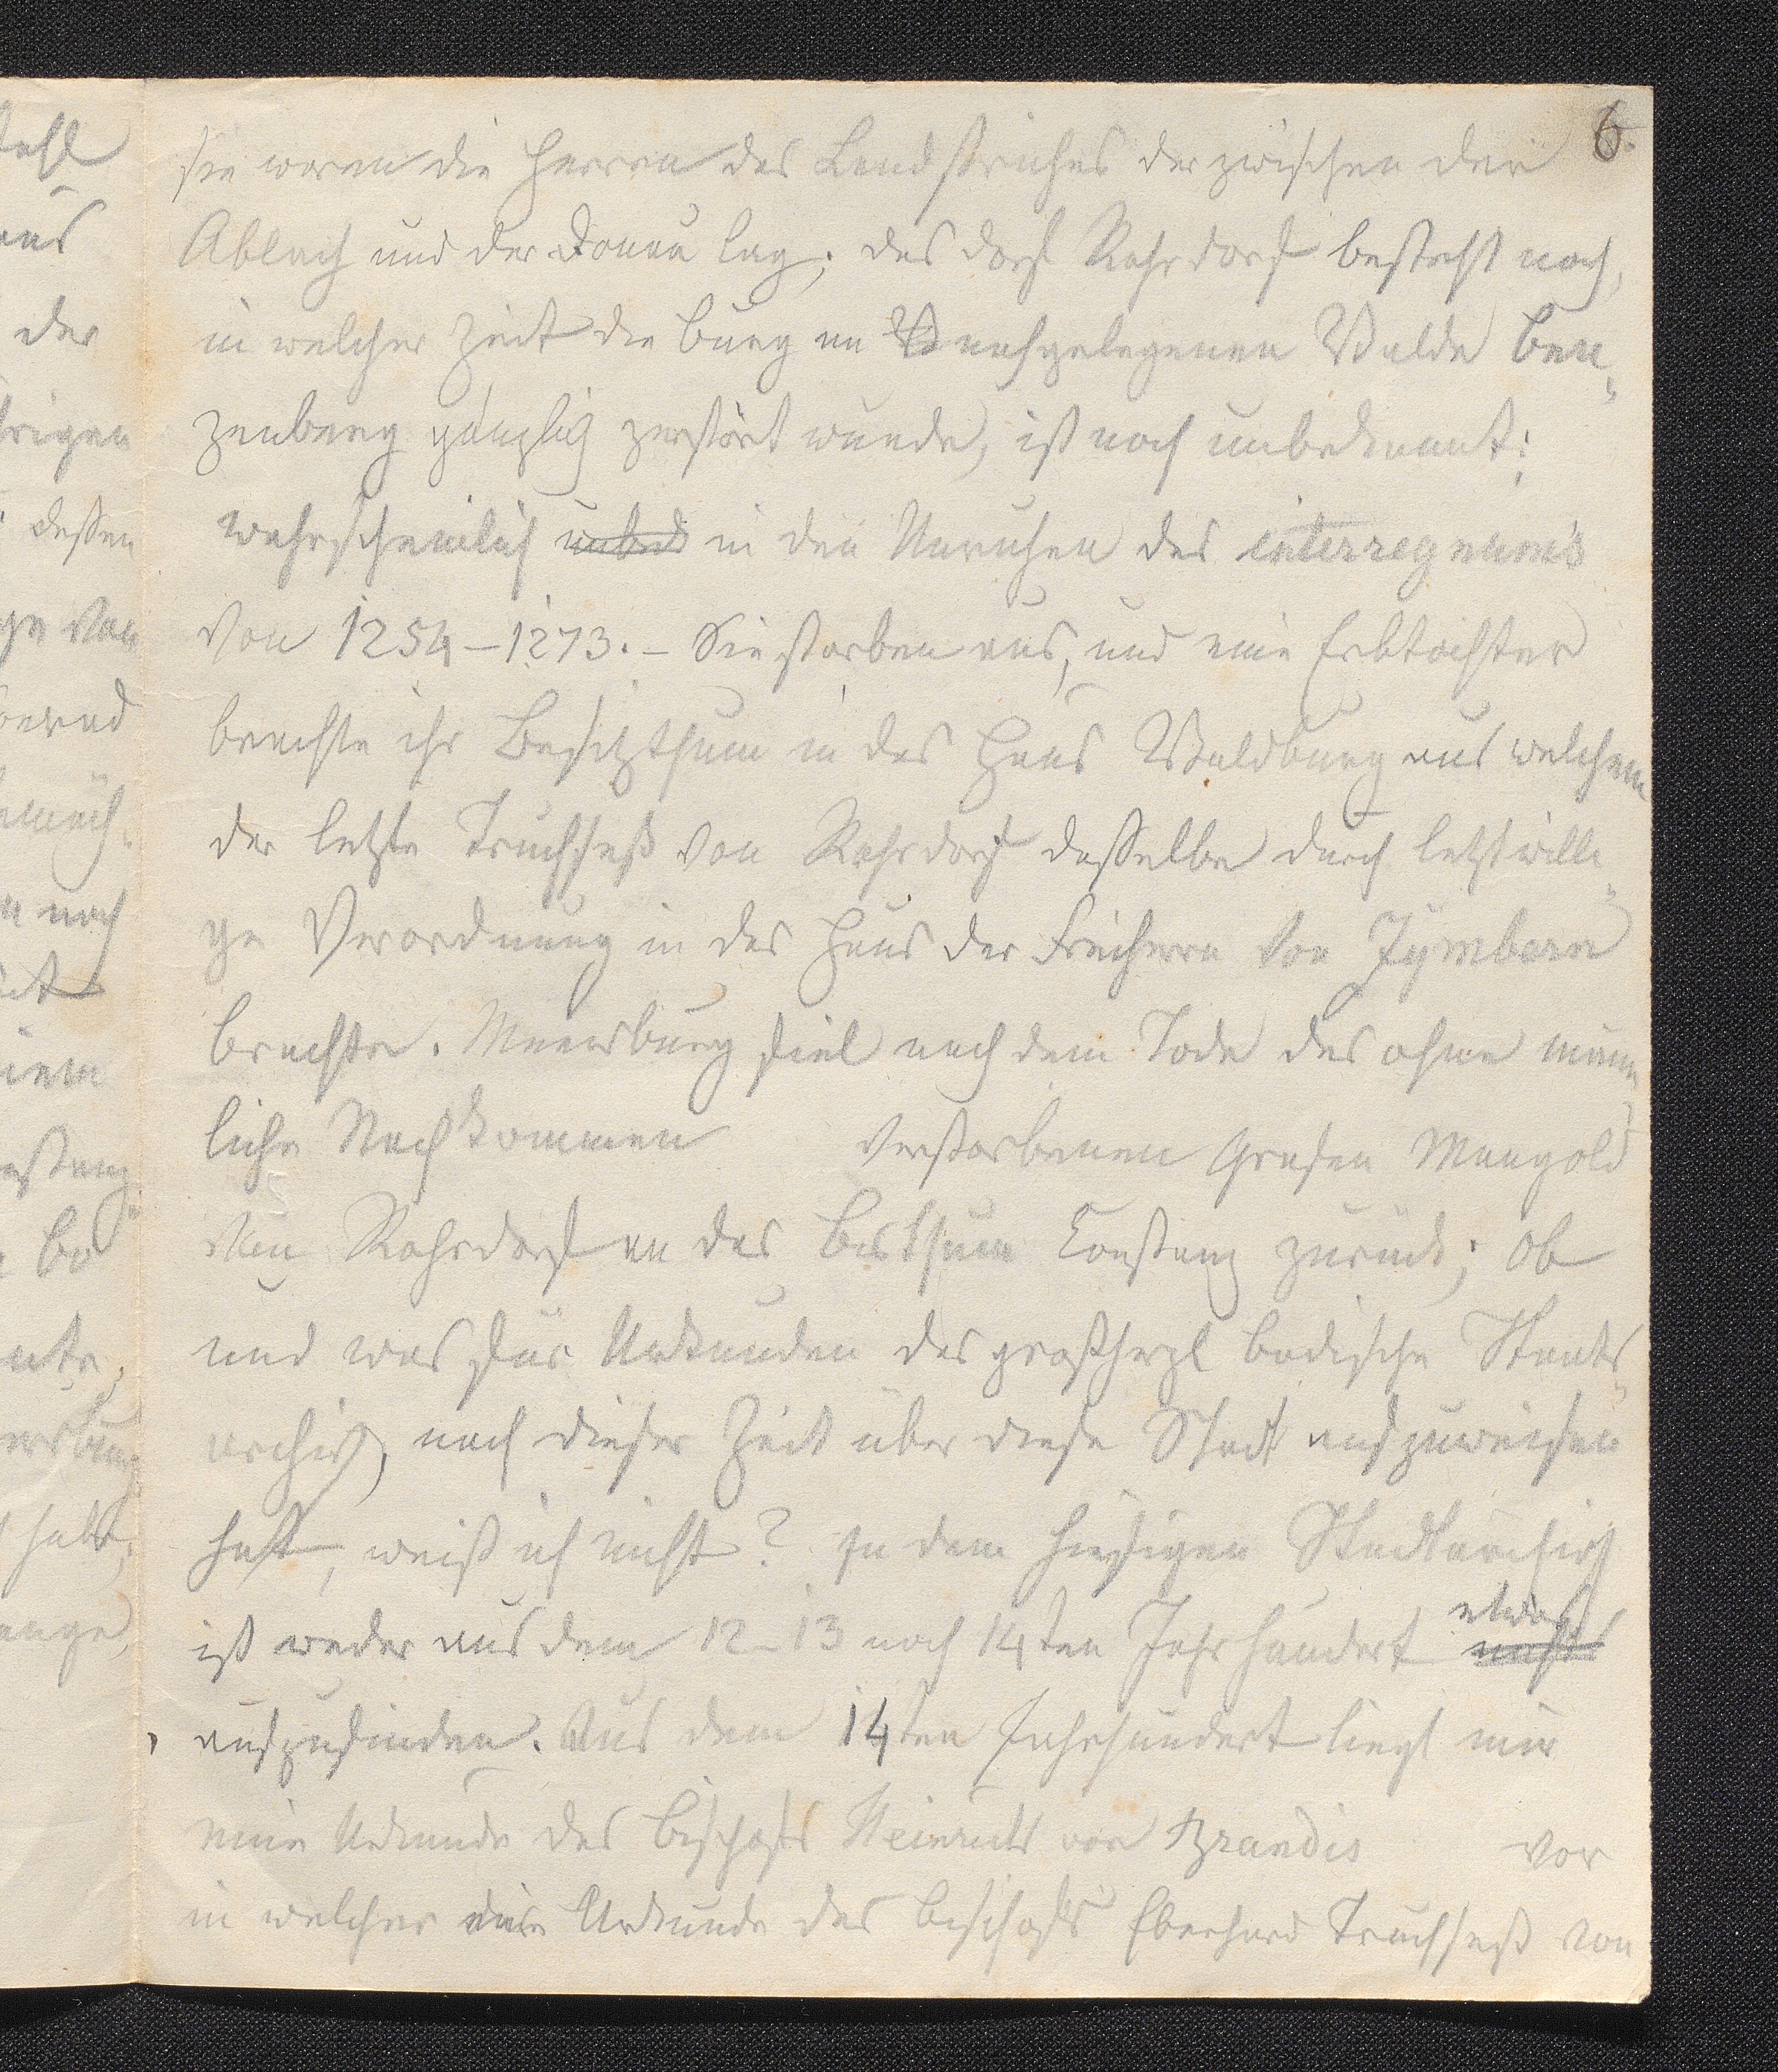 6.
sie waren die Herren des Landstriches der zwischen der
Ablach und der Donau lag; das Dorf Rohrdorf besteht noch,
in welcher Zeit die Burg im nahgelegenen Walde Ben„
zenberg gänzlich zerstört wurde, ist noch unbekannt;
wahrscheinlich unbek in den Unruhen des interregnums
von 1254–1273. – Sie starben aus, und eine Erbtochter
brachte ihr Besitzthum in das Haus Waldburg aus welchem
der letzte Truchseß von Rohrdorf dasselbe durch letztwilli„
ge Verordnung in das Haus der Freiherrn von Zymbern
brachte. Meersburg fiel nach dem Tode des ohne männ
liche Nachkommen verstorbenen Grafen Mangold
von Rohrdorf an das Bisthum Constanz zurück; ob
und was für Urkunden das großherzl badische Staats„
archiv, nach dieser Zeit über diese Stadt aufzuweisen
hat, weiß ich nicht? In dem hiesigen Stadtarchiv
etwas
ist weder aus dem 12–13 noch 14ten Jahrhundert nichts
aufzufinden. Aus dem 14ten Jahrhundert liegt mir
eine Urkunde des Bischofs Heinrichs von Brandis vor
in welcher eine Urkunde des Bischofs Eberhard Truchseß von